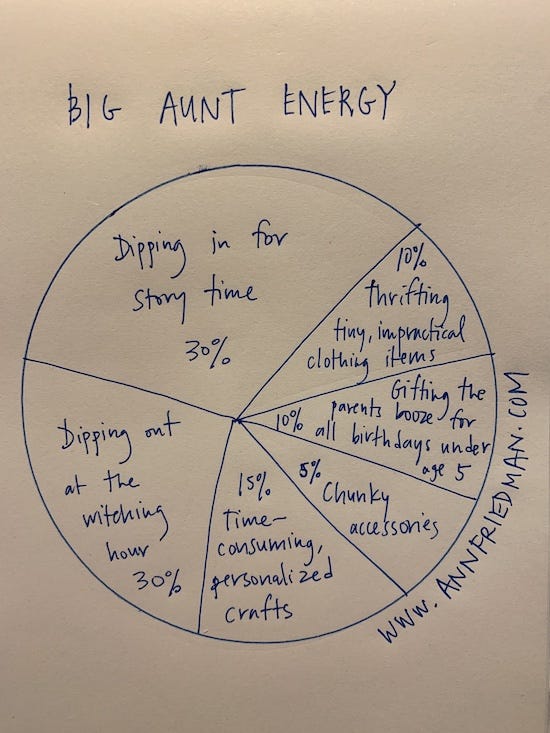 BIG AUNT ENERGY
Dipping in for
story time
30%
10%
thrifting
tiny, impractical
clothing items
Gifting the
parents booze for
10% all birthdays under
age 5
5%
Chunky
accessories
15%
Time-
consuming,
personalized
crafts
Dipping out
at the
witching
hour
30%
WWW.ANNFRIEDMAN.COM